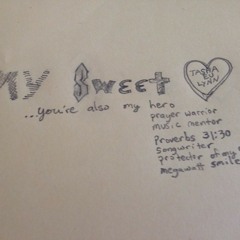 My Sweet
TASHA
EN
LYNN
...you're also my hero
prayer warrior
music mentor
Proverbs 31:30
songwriter
protector of my
megawatt smile